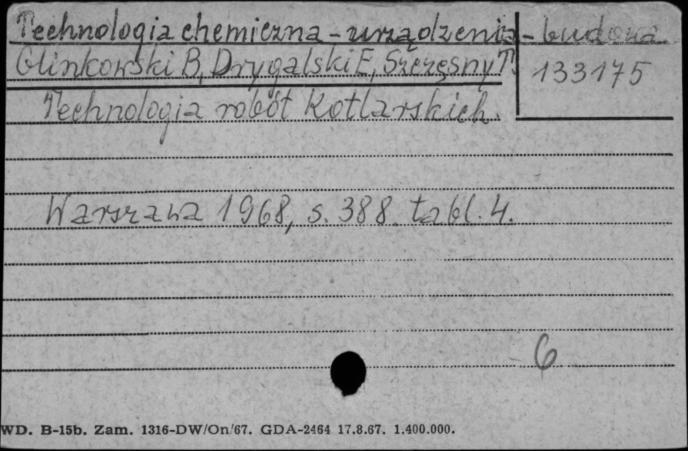 Technologia chemiczna - urządzenia - budowa
Glinkowski B, Drygalski E, Szczęsny T. 133175
Technologia robót Kotlarskich.
Warszawa 1968, s. 388 tabl. 4.
6
WD. B-15b. Zam. 1316-DW/On/67. GDA-2464 17.8.67. 1.400.000.